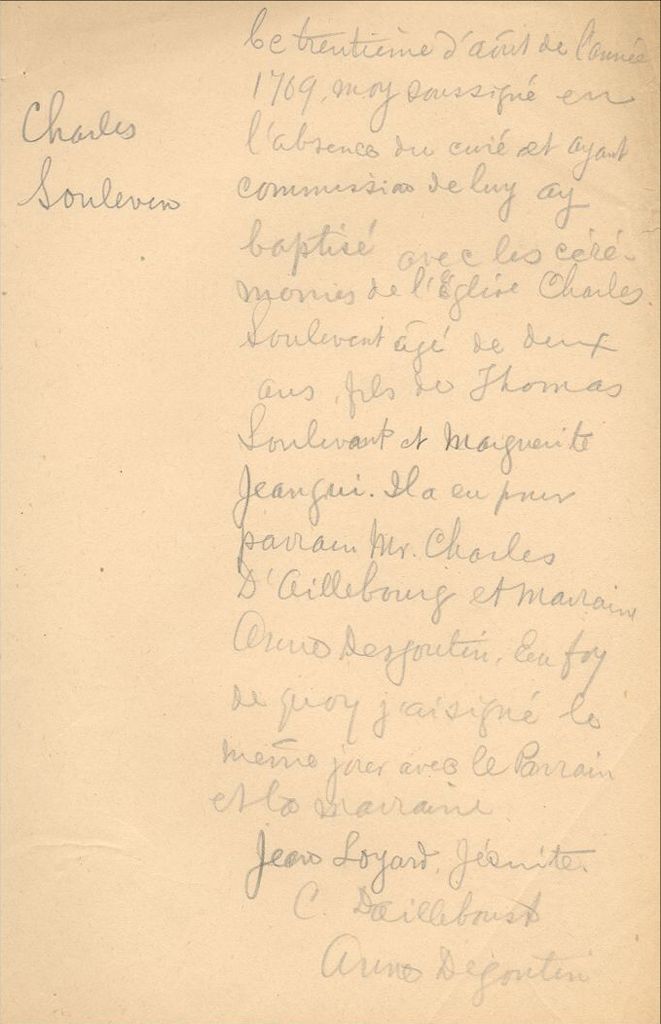 Ce trentième d'aout de l'année
1709, moy soussigné en
Charles
l'absence du curé et ayant
Soulevens
commission de luy ay
baptisé avec les céré-
monies de l'Eglise Charles
Soulevent âgé de deux
ans, fils de Thomas
Soulevant et Marguerite
Jeangui. Il a eu pour
parrain Mr. Charles
D'Aillebourg et marraine
Anne Desgoutin. En foy
de quoy j'ai signé le
même jour avec le Parrain
et la marraine
Jean Loyard, Jésuite.
C. Dailleboust
Anne Degoutin